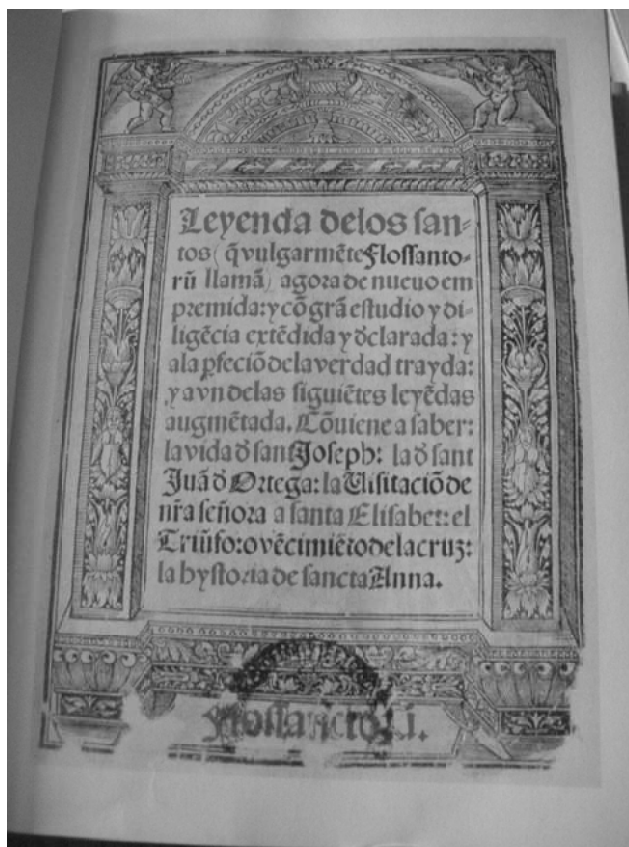 Leyenda delos san=
tos (q̃ vulgarmẽte Flossanto-
rũ llamã) agora de nueuo em
premida: y cõ grã estudio y di-
ligẽcia extẽdida y d̃clarada: y
ala ꝑfeciõ dela verdad trayda:
y avn delas siguiẽtes leyẽdas
augmẽtada. Cõuiene a saber:
la vida d̃ sant Joseph: la d̃ sant
Juã d̃ Ortega: la Uisitaciõ de
nr̃a señora a santa Elisabet: el
Triũfo: o vẽcimiẽto dela cruz:
la hystoria de sancta Anna.